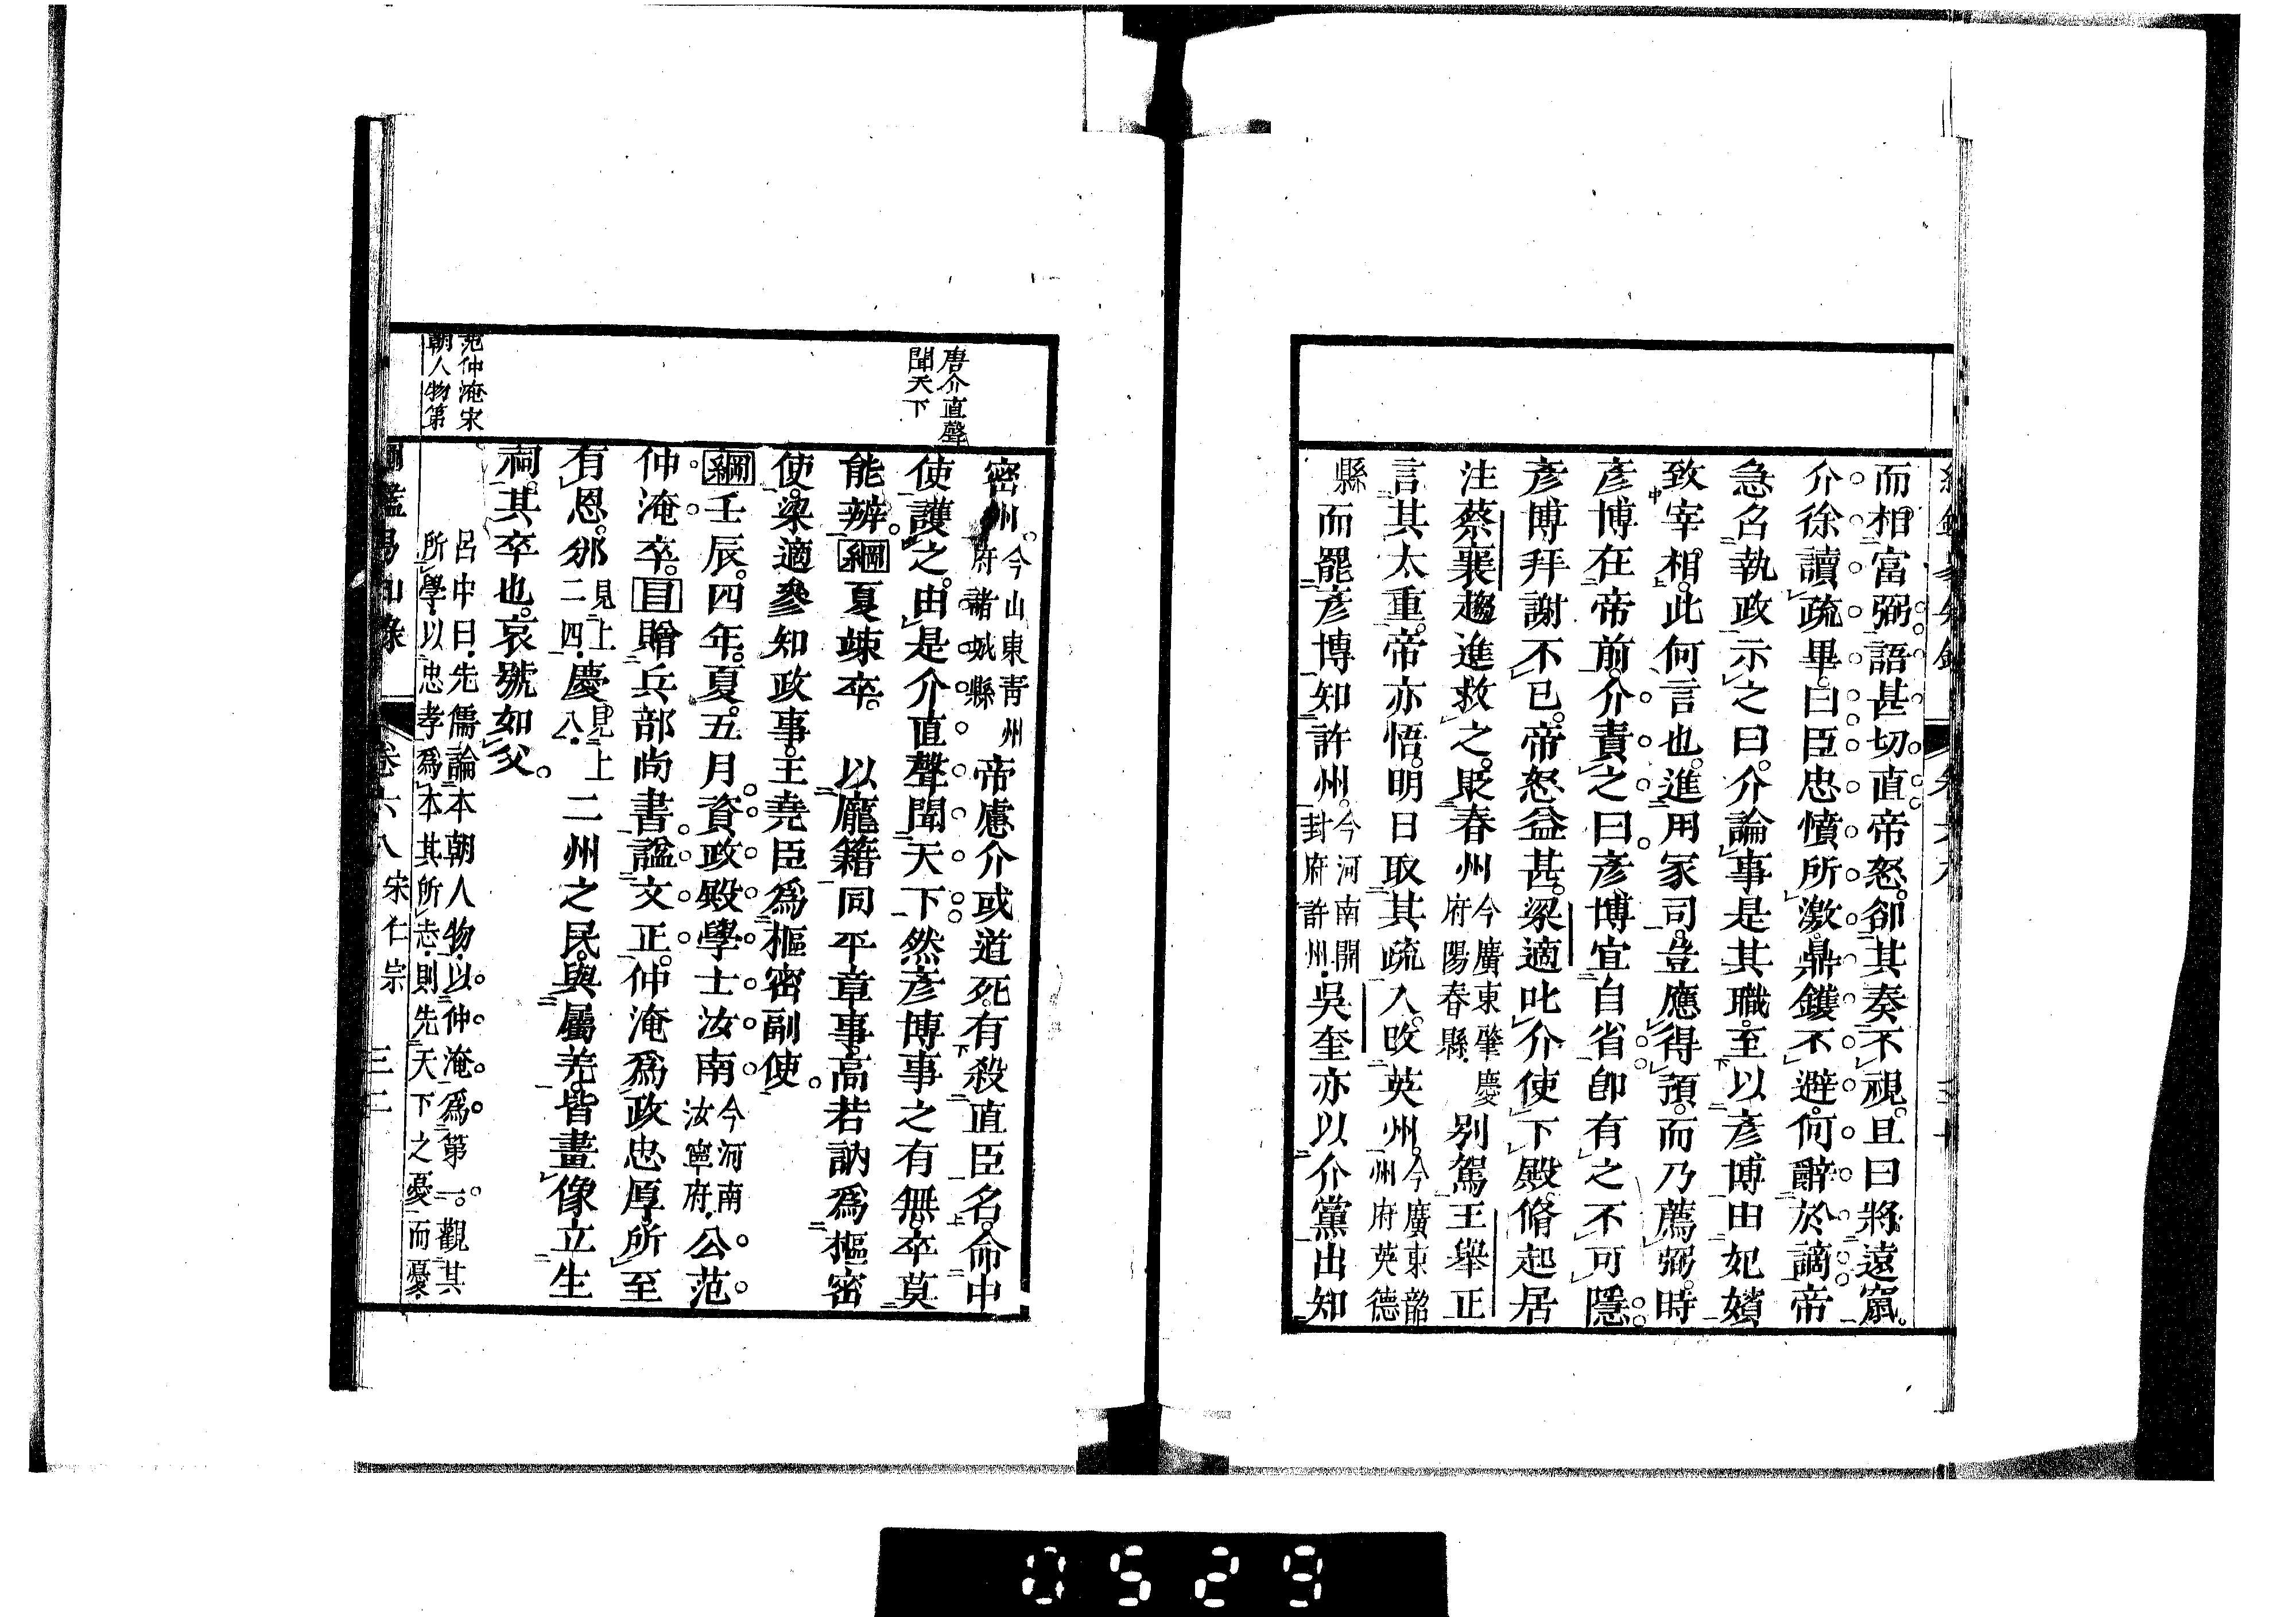 而相富弼語甚切直帝怒卻其奏不視且曰將遠竄
介徐讀疏畢曰臣忠憤所激鼎鑊不避何辭於謫帝
急召執政示之曰介論事是其職至以彥博由妃嬪
致宰相此何言也進用冢司豈應得預而乃薦弼時
彥博在帝前介責之曰彥博宜自省卽有之不可隱
彥博拜謝不已帝怒益甚梁適叱介使下殿脩起居
注蔡襄趨進救之貶春州今廣東肇慶府陽春縣別駕王舉正
言其太重帝亦悟明日取其疏入改英州今廣東韶州府英德
縣而罷彥博知許州今河南開封府許州吳奎亦以介黨出知
唐介直聲
聞天下
密州今山東青州府諸城縣帝慮介或道死有殺直臣名命中
使護之由是介直聲聞天下然彥博事之有無卒莫
能辨綱夏竦卒 以龐籍同平章事高若訥爲樞密
使梁適參知政事王堯臣爲樞密副使
綱壬辰四年夏五月資政殿學士汝南今河南汝寧府公范
仲淹卒目贈兵部尚書諡文正仲淹爲政忠厚所至
有恩邠見上二四慶見上八二州之民與屬羌皆畫像立生
祠其卒也哀號如父
范仲淹宋
朝人物第
呂中曰先儒論本朝人物以仲淹爲第一觀其
所學以忠孝爲本其所志則先天下之憂而憂
鑑易知錄 卷六八 宋仁宗 三二
0529